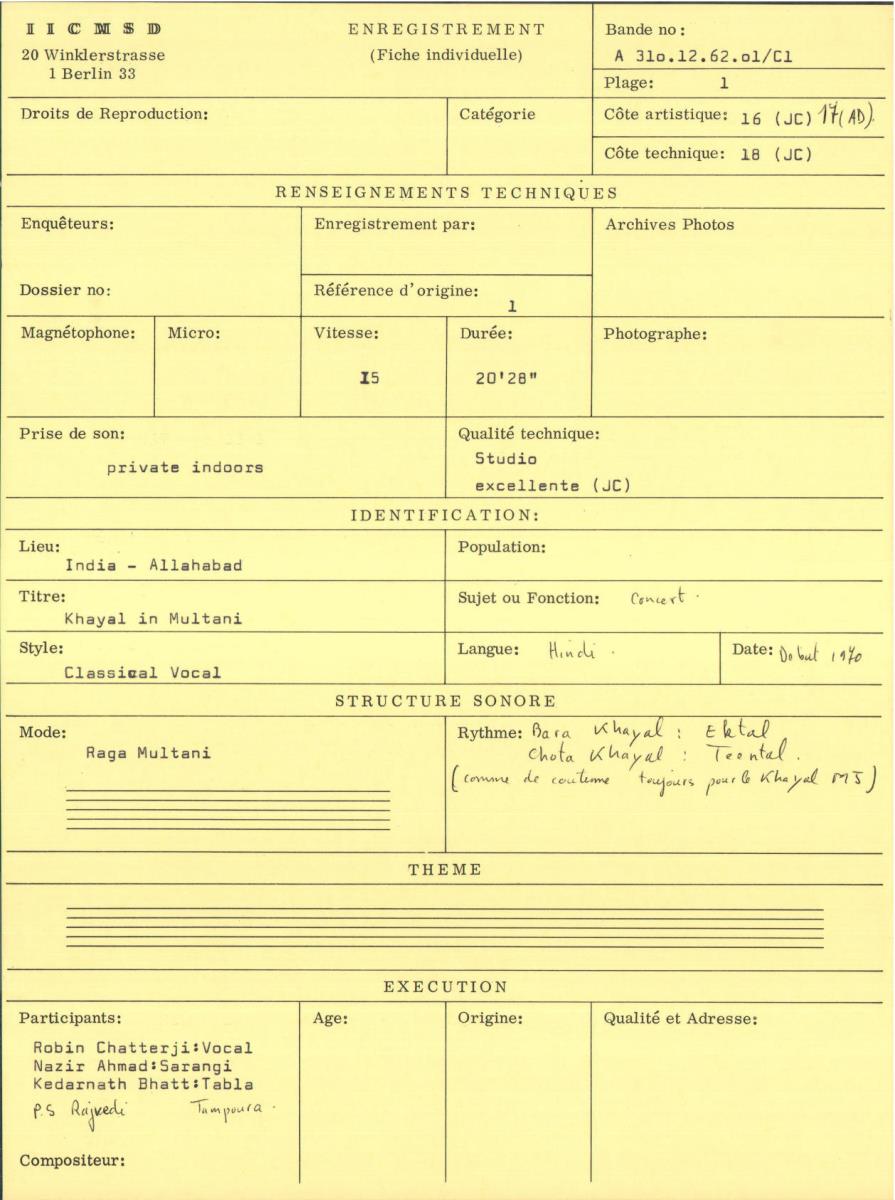 IICMSD
20 Winklerstrasse
1 Berlin 33
ENREGISTREMENT
(Fiche individuelle)
Bande no :
A 31o.12.62.o1/C1
Plage: 1
Droits de Reproduction:
Catégorie
Côte artistique: 16 (JC) 17(AD).
Côte technique: 18 (JC)
RENSEIGNEMENTS TECHNIQUES
Enquêteurs:
Enregistrement par:
Archives Photos
Dossier no:
Référence d'origine:
1
Magnétophone:
Micro:
Vitesse:
I5
Durée:
20'28"
Photographe:
Prise de son:
private indoors
Qualité technique:
Studio
excellente (JC)
IDENTIFICATION:
Lieu:
India - Allahabad
Population:
Titre:
Khayal in Multani
Sujet ou Fonction: Concert.
Style:
Classical Vocal
Langue: Hindi.
Date: Debut 1970
STRUCTURE SONORE
Mode:
Raga Multani
Rythme: Bara Khayal : Ektal
Chota Khayal : Teental.
(comme de coutume toujours pour le Khayal MJ)
THEME
EXECUTION
Participants:
Robin Chatterji:Vocal
Nazir Ahmad:Sarangi
Kedarnath Bhatt:Tabla
P.S Rajvedi Tampoura.
Age:
Origine:
Qualité et Adresse:
Compositeur: